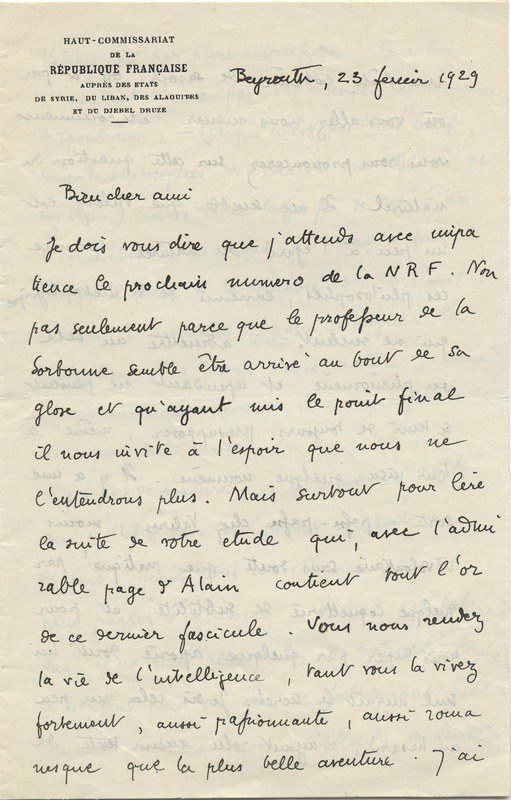 HAUT-COMMISSARIAT
DE LA
RÉPUBLIQUE FRANÇAISE
AUPRÈS DES ETATS
DE SYRIE, DU LIBAN, DES ALAOUITES
ET DU DJEBEL DRUZE
Beyrouth, 23 fevrier 1929
Bien cher ami
Je dois vous dire que j'attends avec impa
tience le prochain numero de la NRF. Non
pas seulement parce que le professeur de la
Sorbonne semble être arrivé au bout de sa
glose et qu'ayant mis le point final
il nous invite à l'espoir que nous ne
l'entendrons plus. Mais surtout pour lire
la suite de votre etude qui, avec l'admi
rable page d'Alain contient tout l'or
de ce dernier fascicule. Vous nous rendez
la vie de l'intelligence, tant vous la vivez
fortement, aussi passionnante, aussi roma
nesque que la plus belle aventure. J'ai